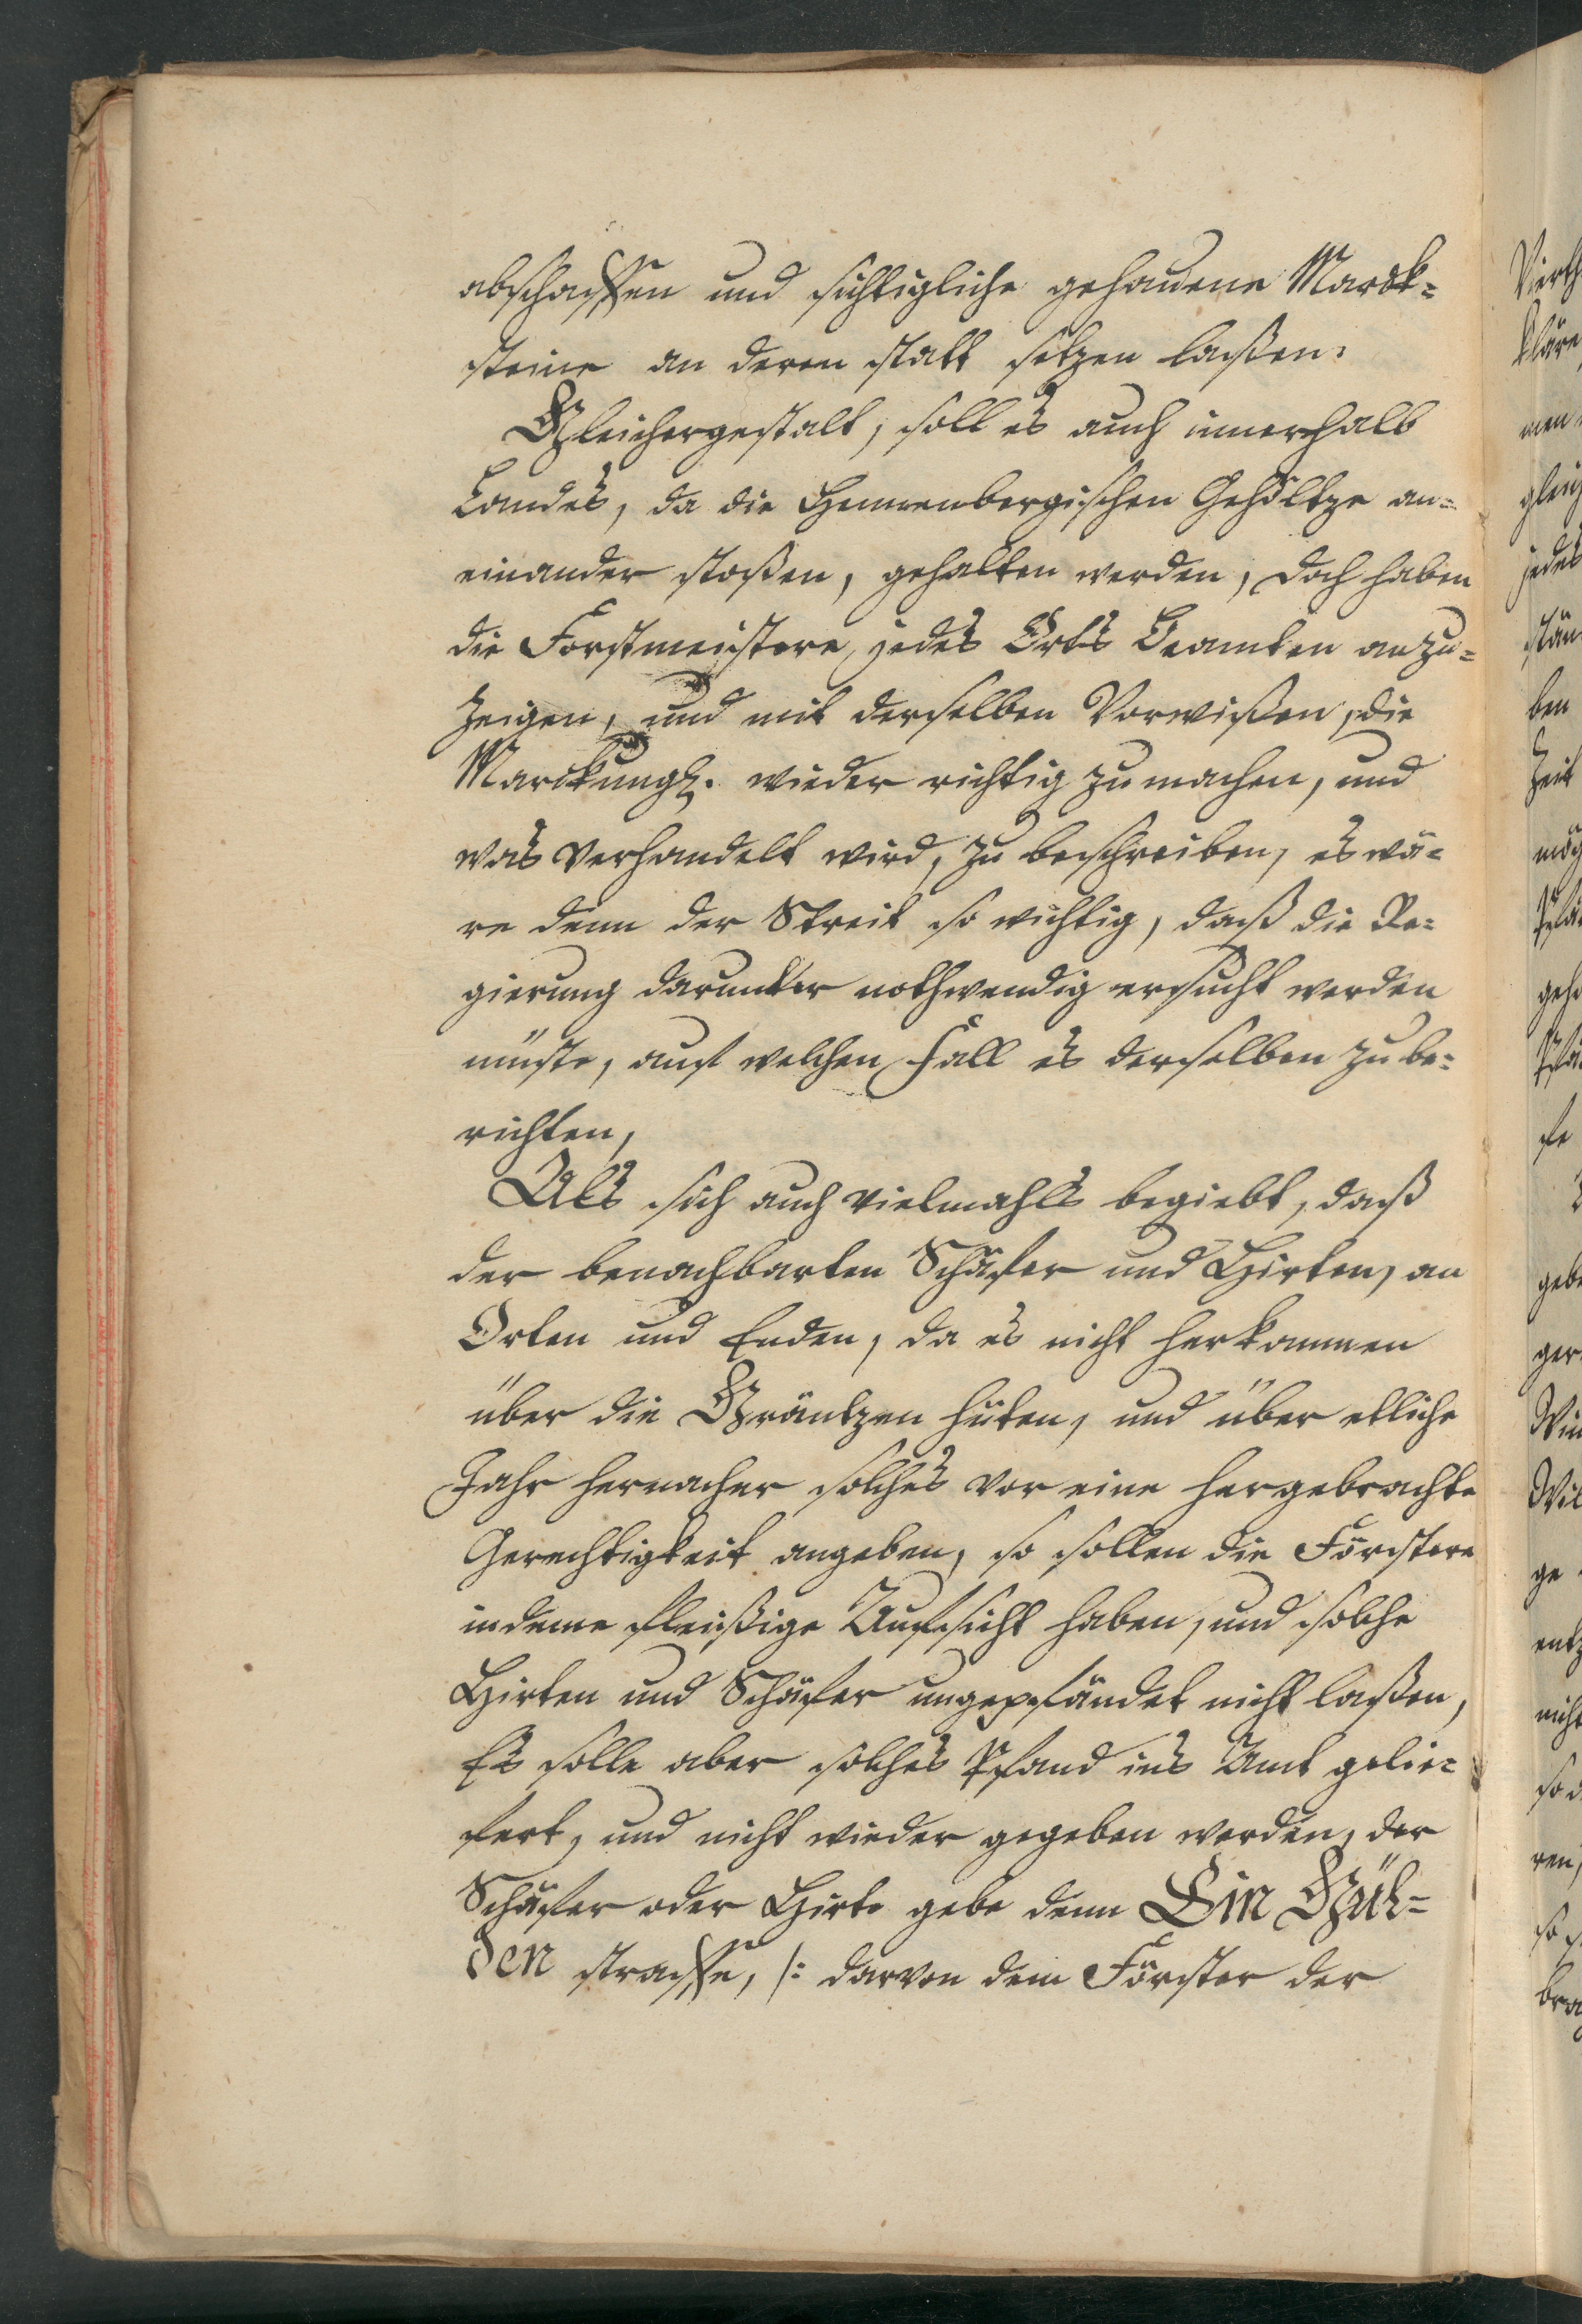 abschaffen und sichtigliche gehauene Marck-
steine an deren statt setzen laßen.
Gleichergestalt, soll es auch innerhalb
Landes, da die Hennenbergischen Gehöltze an-
einander stoßen, gehalten werden, doch haben
die Forstmeistere, jedes Orts Beamten anzu-
zeigen, und mit derselben Vorwißen, die
Marckung. wieder richtig zu machen, und
was verhandelt wird, zu beschreiben, es wä-
re denn der Streit so wichtig, daß die Re-
gierung darunter nothwendig ersucht werden
müste, auf welchen Fall es derselben zu be-
richten,
Als sich auch vielmahls begiebt, daß
der benachbarten Schäfer und Hirten, an
Orten und Enden, da es nicht herkommen
über die Gräntzen hüten, und über etliche
Jahr hernacher solches vor eine hergebrachte
Gerechtigkeit angeben, so sollen die Förstere
indeme fleißige Aufsicht haben, und solche
Hirten und Schäfer ungepfändet nicht laßen,
Es solle aber solches Pfand ins Amt gelie-
fert, und nicht wieder gegeben werden, der
Schäfer oder Hirte gebe denn Ein Gül-
den straffe, /: darvon dem Förster der